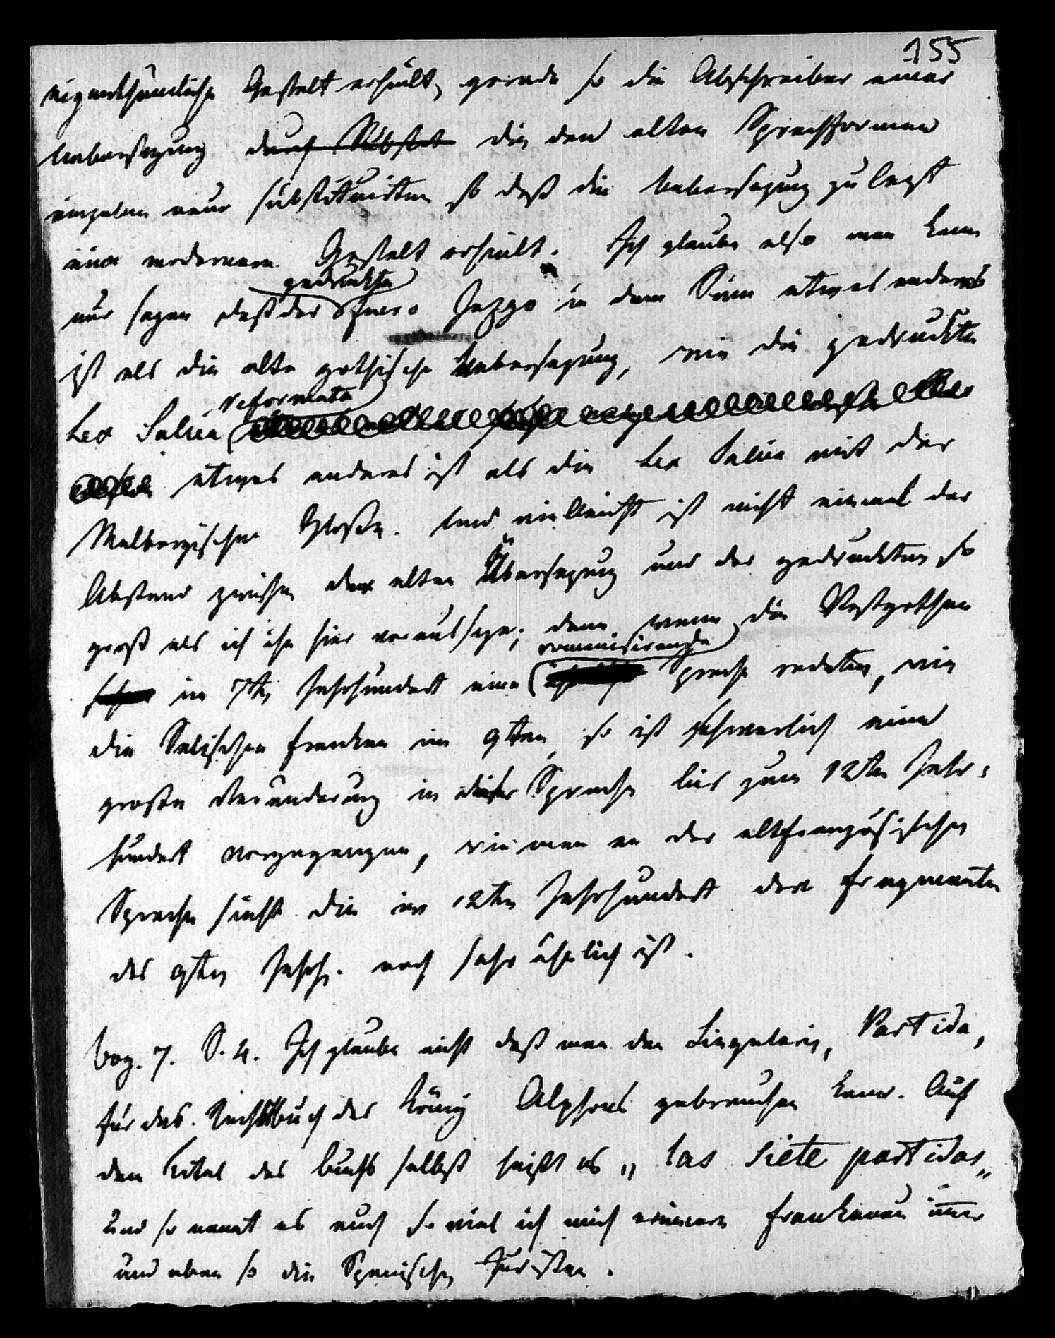 155
eigenthümliche Gestalt erhielt, gerade so die Abschreiber einer
Uebersetzung durch Substit die den alten Sprachformen
einzelne neue substituirten so daß die Uebersetzung zuletzt
eine modernere Gestalt erhielt. Ich glaube also man kann
gedruckte
nur sagen daß der Fuero Juzgo in dem Sinn etwas anderes
ist als die alte gothische Uebersetzung, wie die gedruckte
reformata
Lex Salica
etwas anderes ist als die Lex Salica mit der
Malbergischen Glosse. Und vielleicht ist nicht einmal der
Abstand zwischen der alten Übersetzung und der gedruckten so
groß als ich ihn hier voraussetze; denn wenn die Westgothen
romanisirende
im 7ten Jahrhundert eine Sprache redeten, wie
die Salischen Franken im 9ten, so ist schwerlich eine
große Veränderung in dieser Sprache bis zum 12ten Jahr-
hundert vorgegangen, wie man an der altfranzösischen
Sprache sieht die im 12ten Jahrhundert den Fragmenten
des 9ten Jahrh. noch sehr ähnlich ist.
Bog. 7. S. 4. Ich glaube nicht daß man den Singularis, Partida,
für das Rechtsbuch des König Alphons gebrauchen kann. Auf
dem Titel des Buchs selbst heißt es „las siete partidas„
und so nennt es auch so viel ich mich erinnere Frankenau immer
und eben so die Spanischen Juristen.